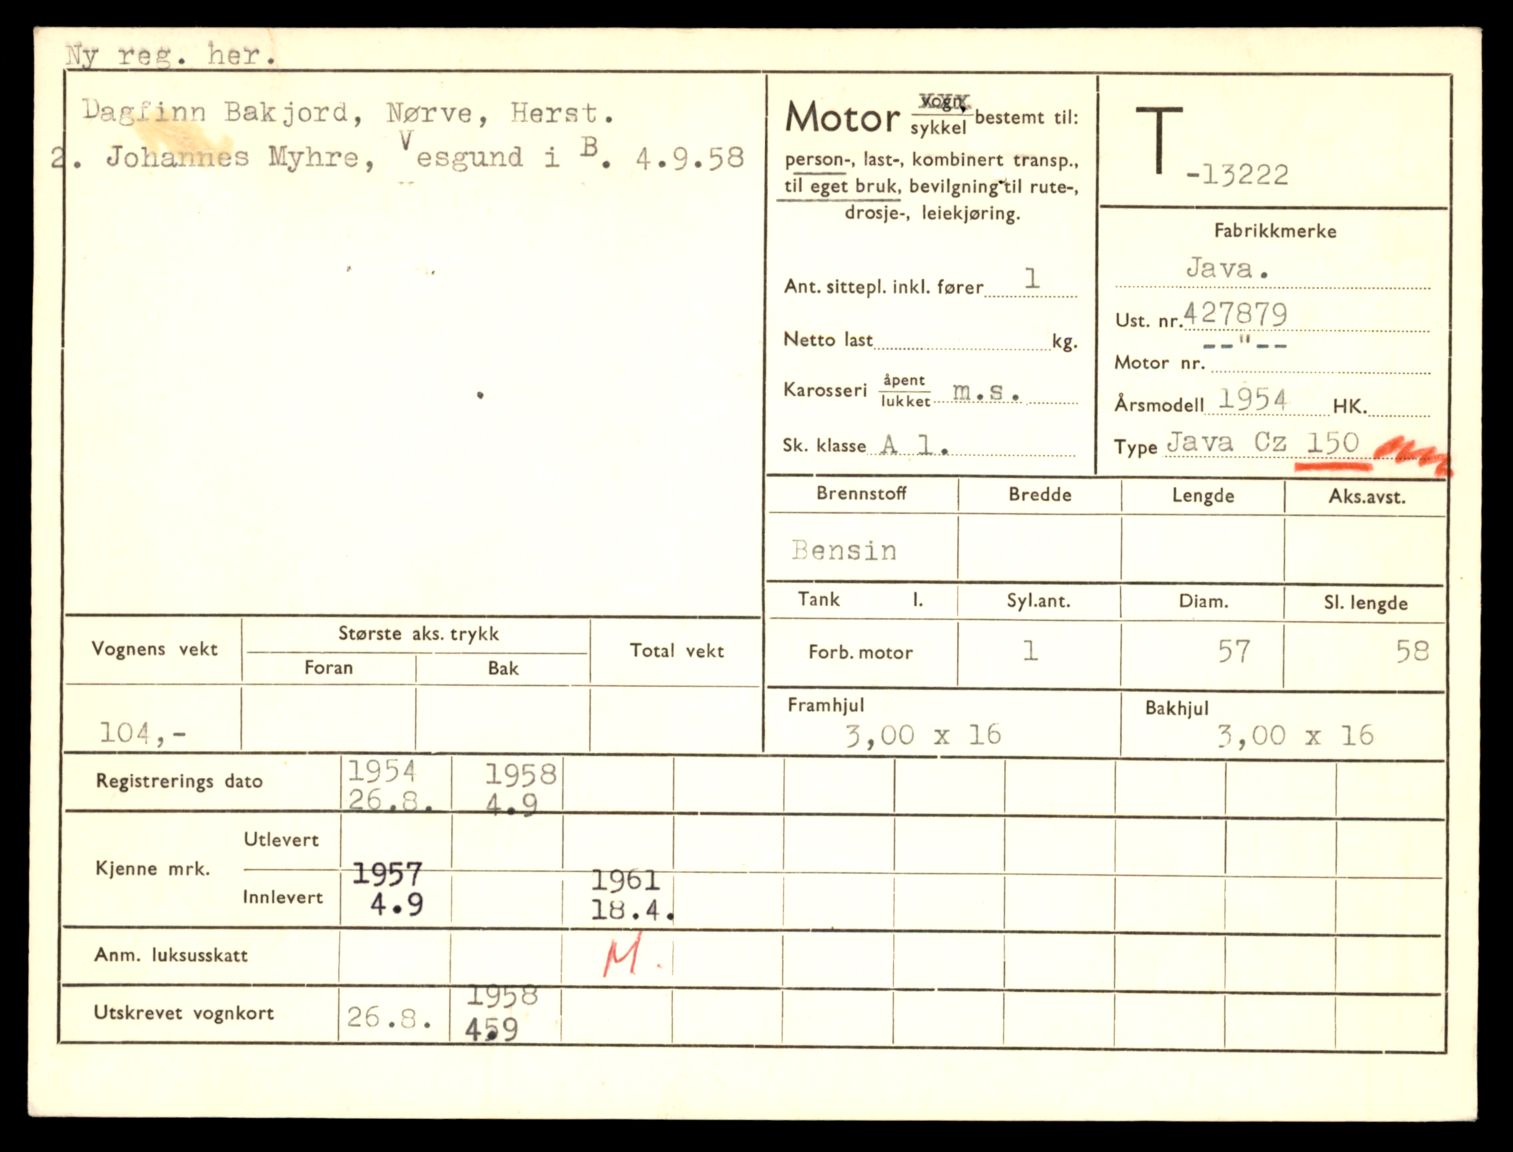 Ny reg. her.
Dagfinn Bakjord, Nørve, Herst.
2. Johannes Myhre, Vesgund i B. 4.9.58
Motor vogn, sykkel bestemt til:
person-, last-, kombinert transp.,
til eget bruk, bevilgning til rute-,
drosje-, leiekjøring.
Ant. sittepl. inkl. fører 1
Netto last kg.
Karosseri åpent lukket m.s.
Sk. klasse A 1.
T -13222
Fabrikkmerke
Java.
Ust. nr. 427879
Motor nr. --"--
Årsmodell 1954 HK.
Type Java Cz 150
Brennstoff Bredde Lengde Aks.avst.
Bensin
Tank l. Syl.ant. Diam. Sl. lengde
Forb. motor 1 57 58
Framhjul Bakhjul
3,00 x 16 3,00 x 16
Vognens vekt Største aks. trykk Total vekt
Foran Bak
104,-
Registrerings dato 1954 1958
26.8. 4.9
Kjenne mrk. Utlevert
Innlevert 1957 1961
4.9 18.4.
Anm. luksusskatt M.
Utskrevet vognkort 26.8. 1958